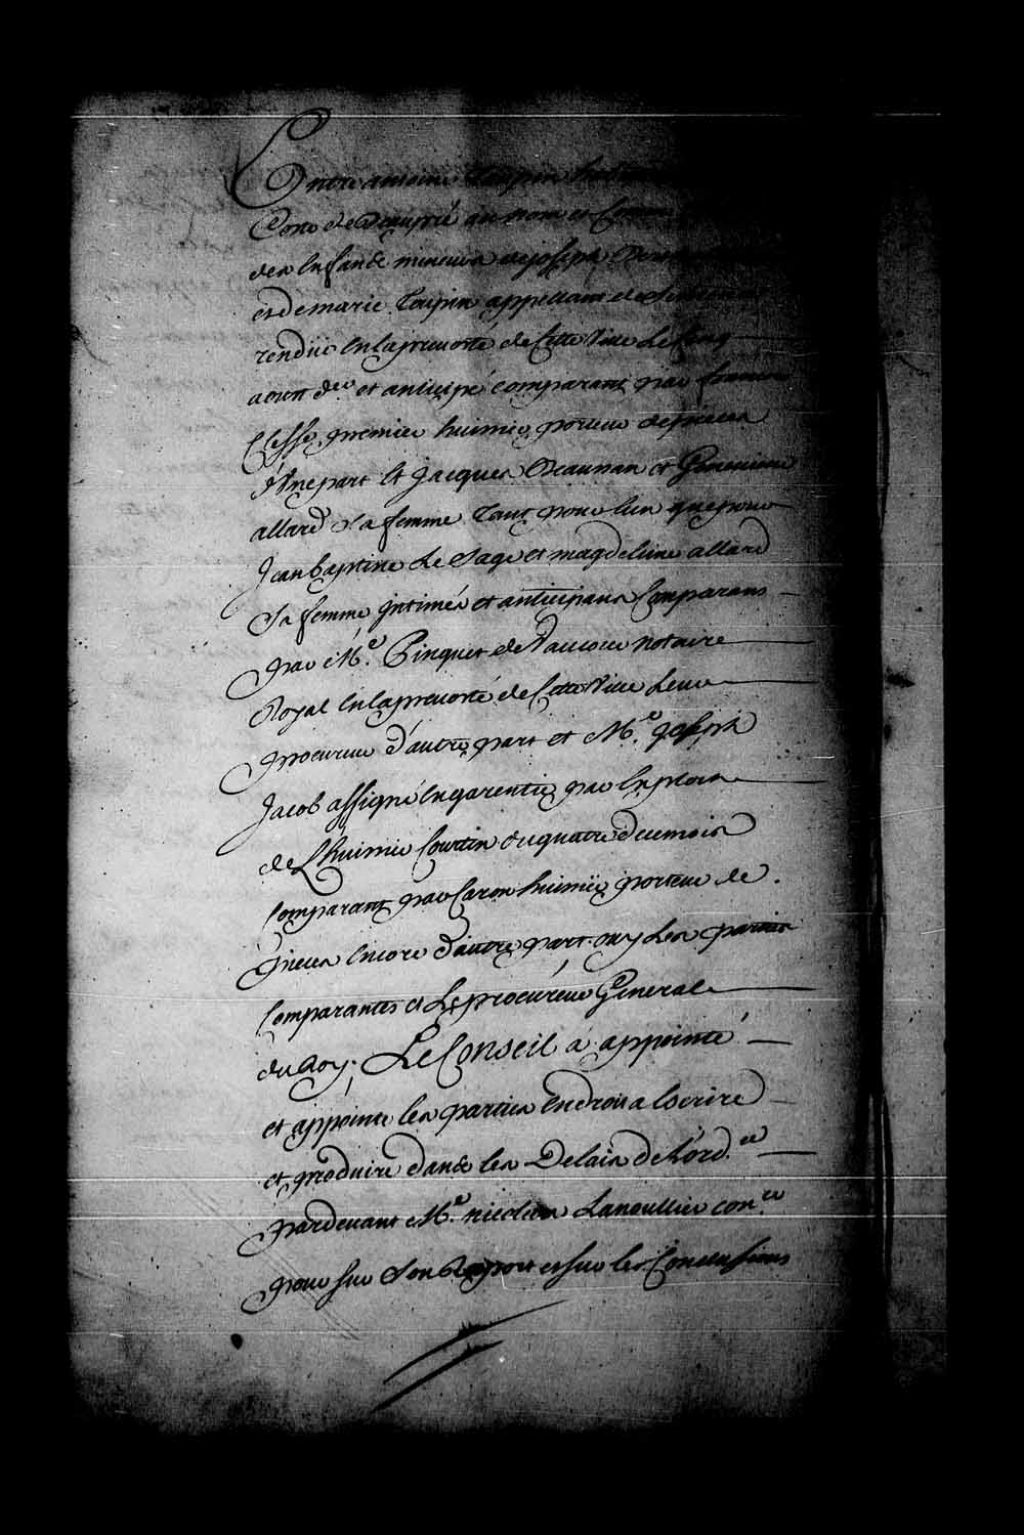 Entre antoine Toupin
Coste de Beaupré au nom et Comme
des Enfans mineurs de joseph
et de marie Toupin appellant de Sentence
rendüe En la prevosté de Cette Ville Le Cinq
aoust d.er et anticipé comparant par
Clesse premier huissier porteur de pieces
d'Une part Et Jacques Beaunan et Genevieve
allard Sa femme Tant pour Eux que pour
Jean baptiste Le Sage et magdeleine allard
Sa femme jntimés et anticipans Comparans
par M.e Pinguet de Vaucour notaire
Royal En la prevosté de Cette Ville Leur
procureur d'autre part et M.e joseph
Jacob assigné En garentie par Exploit
de L'huissier Courtin du quatre de ce mois
Comparant par Caron huissier porteur de
pieces Encore d'autre part. ouy Les parties
Comparantes et Le procureur General
du Roy; Le Conseil a appointé
et appointe les parties En droit a Escrire
et produire dans les Delais de L'ord.ce
pardevant M.e nicolas Lanoullier con.er
pour sur Son Raport et sur les Conclusions